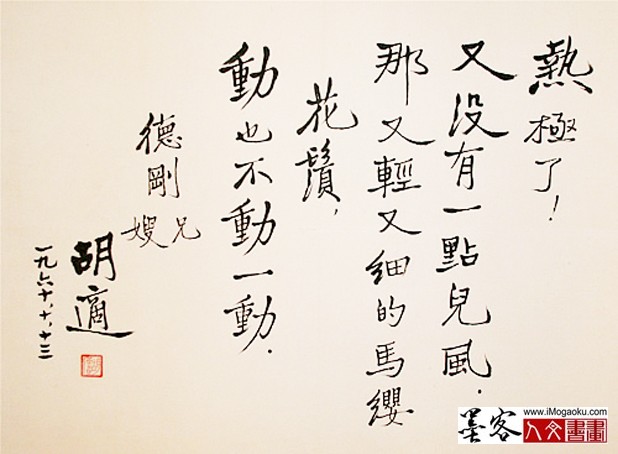 熱極了!
又没有一點兒風.
那又輕又細的馬纓
花鬚,
動也不動一動.
德剛兄嫂
胡適
一九六十,十,十三
墨客
www.iMogaoku.com
人文書畫